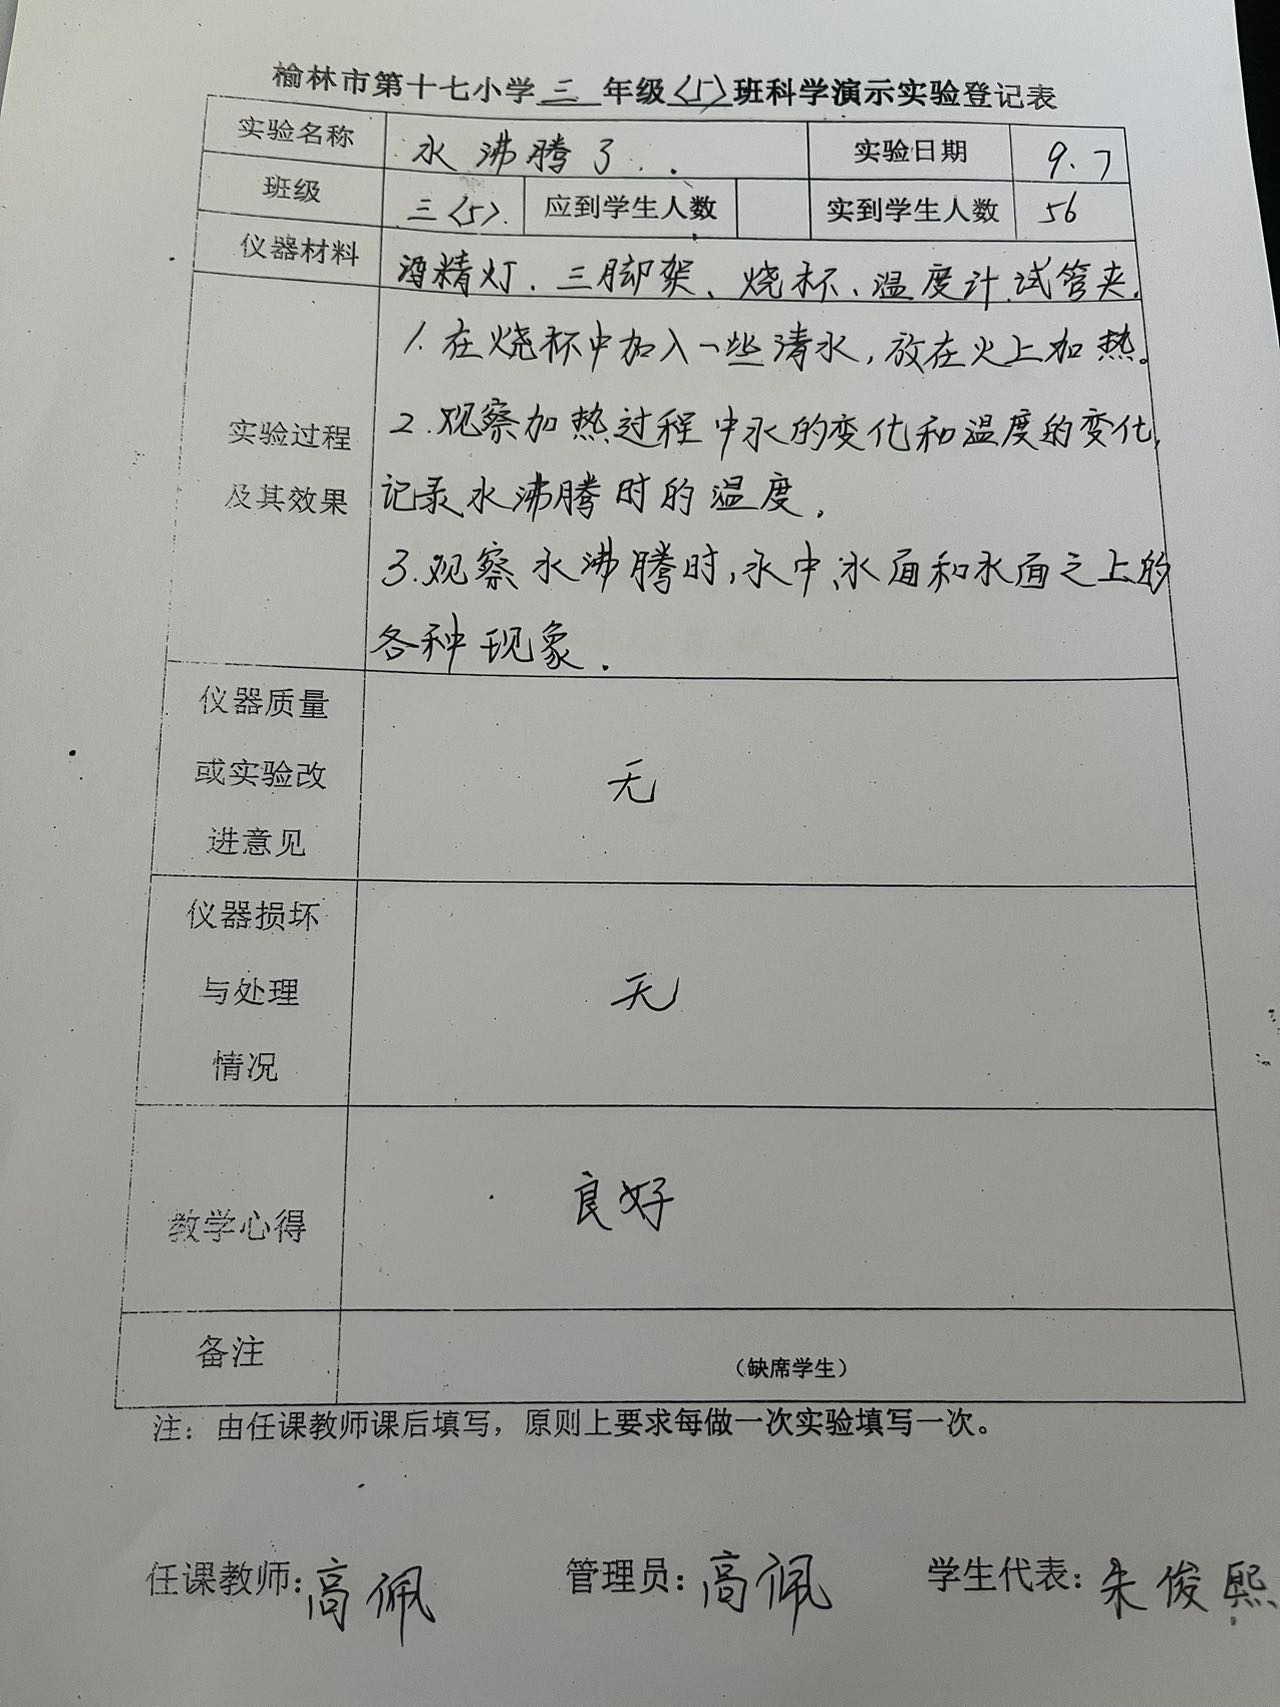 榆林市第十七小学三年级〈5〉班科学演示实验登记表
实验名称 水沸腾了. 实验日期 9.7
班级 三〈5〉. 应到学生人数 实到学生人数 56
仪器材料 酒精灯、三脚架、烧杯、温度计、试管夹.
1.在烧杯中加入一些清水,放在火上加热。
实验过程 2.观察加热过程中水的变化和温度的变化,
及其效果 记录水沸腾时的温度.
3.观察水沸腾时,水中、水面和水面之上的
各种现象.
仪器质量
或实验改 无
进意见
仪器损坏
与处理 无
情况
教学心得 良好
备注 （缺席学生）
注：由任课教师课后填写，原则上要求每做一次实验填写一次。
任课教师:高佩 管理员:高佩 学生代表:朱俊熙